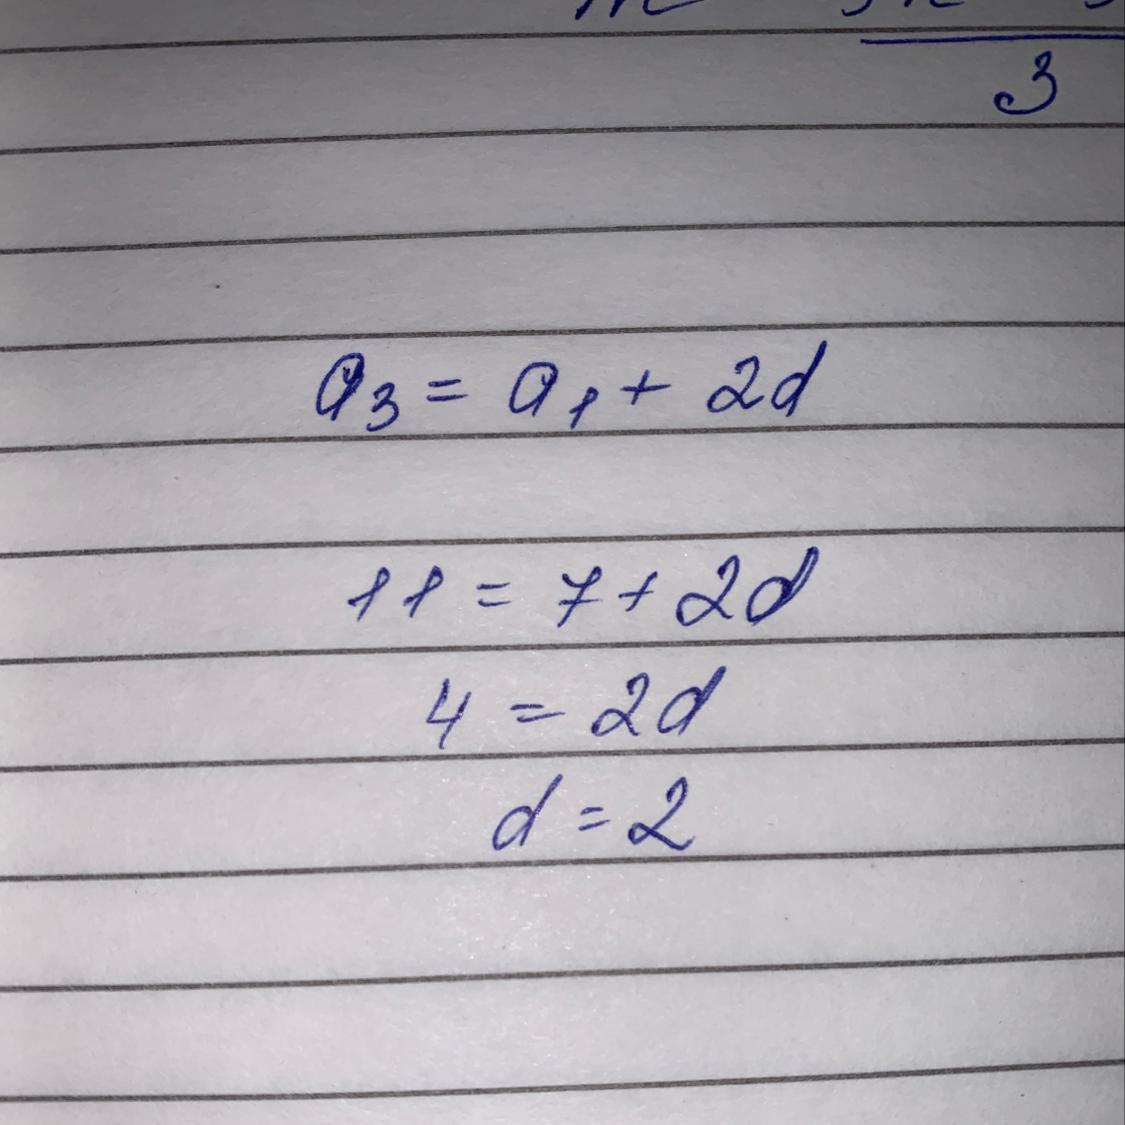 3
a₃ = a₁ + 2d
11 = 7 + 2d
4 = 2d
d = 2